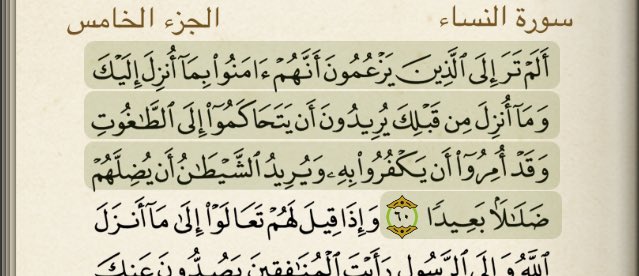 سورة النساء الجزء الخامس
أَلَمْ تَرَ إِلَى ٱلَّذِينَ يَزْعُمُونَ أَنَّهُمْ ءَامَنُوا۟ بِمَآ أُنزِلَ إِلَيْكَ
وَمَآ أُنزِلَ مِن قَبْلِكَ يُرِيدُونَ أَن يَتَحَاكَمُوٓا۟ إِلَى ٱلطَّـٰغُوتِ
وَقَدْ أُمِرُوٓا۟ أَن يَكْفُرُوا۟ بِهِۦ وَيُرِيدُ ٱلشَّيْطَـٰنُ أَن يُضِلَّهُمْ
ضَلَـٰلًۢا بَعِيدًا ٦٠ وَإِذَا قِيلَ لَهُمْ تَعَالَوْا۟ إِلَىٰ مَآ أَنزَلَ
ٱللَّهُ وَإِلَى ٱلرَّسُولِ رَأَيْتَ ٱلْمُنَـٰفِقِينَ يَصُدُّونَ عَنكَ